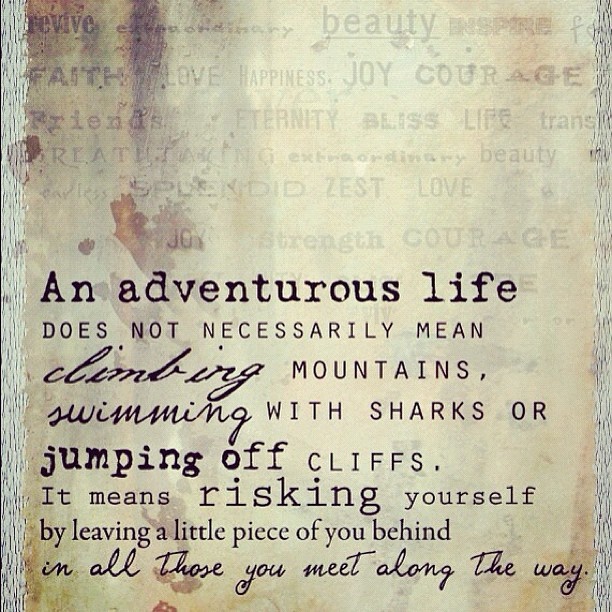 revive extraordinary beauty INSPIRE
FAITH LOVE HAPPINESS. JOY COURAGE
Friends ETERNITY BLISS LIFE trans
BREATHTAKING extraordinary beauty
SPLENDID ZEST LOVE
JOY Strength COURAGE
An adventurous life
DOES NOT NECESSARILY MEAN
climbing MOUNTAINS,
swimming WITH SHARKS OR
jumping off CLIFFS.
It means risking yourself
by leaving a little piece of you behind
in all those you meet along the way.